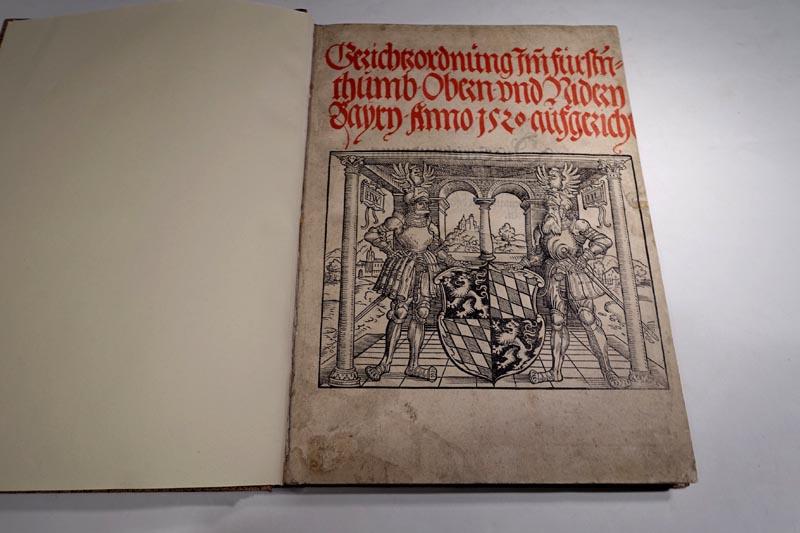 Gerichtzordnung Im fürstn-
thumb Obern vnd Nidern
Bayrn Anno 1520 aufgericht